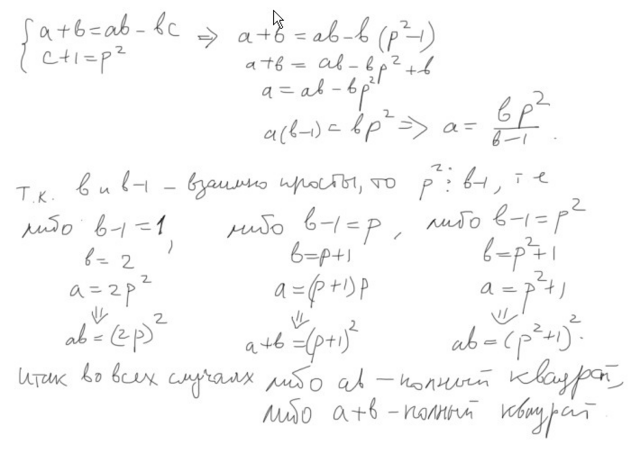 { a+b=ab-bc ⇒ a+b=ab-b(p²-1)
c+1=p²
a+b=ab-bp²+b
a=ab-bp²
a(b-1)=bp² ⇒ a= bp²/b-1 .
Т.к. b и b-1 - взаимно просты, то p²⋮b-1, т е
либо b-1=1, либо b-1=p, либо b-1=p²
b=2 b=p+1 b=p²+1
a=2p² a=(p+1)p a=p²+1
⇓ ⇓ ⇓
ab=(2p)² a+b=(p+1)² ab=(p²+1)².
итак во всех случаях либо ab-полный квадрат,
либо a+b-полный квадрат.